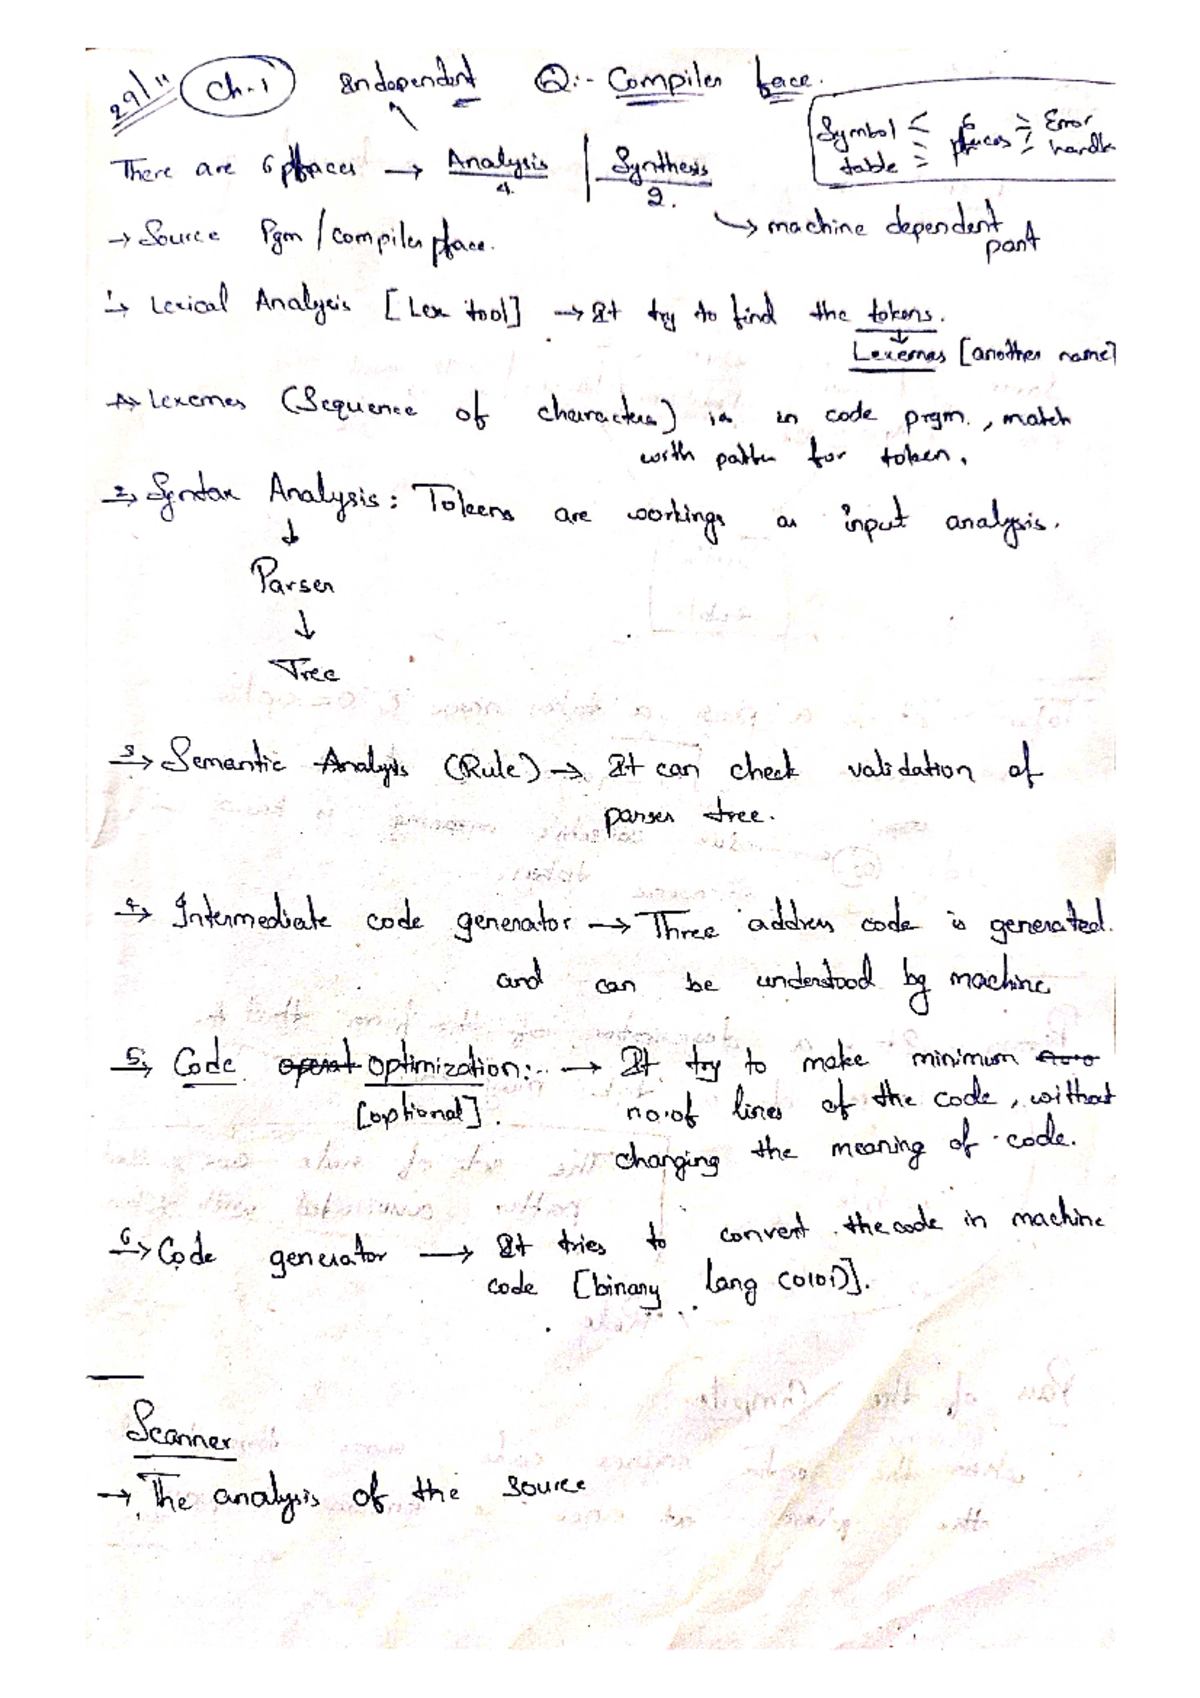 29/11 Ch-1 Independent Q:- Compiler face.
Symbol table 6 phaces Error handle
There are 6 pfaces → Analysis 4. | Synthesis 2.
→ Source Pgm / compiler pface.
↳ machine dependent part
1→ Lexical Analysis [Lex tool] → It try to find the tokens.
↓
Lexemes [another name]
→ Lexemes (Sequence of characters) is in code prgm., match
with patter for token.
2→ Syntax Analysis: Tokens are workings as input analysis.
↓
Parser
↓
Tree
3→ Semantic Analysis (Rule) → It can check validation of
parser tree.
4→ Intermediate code generator → Three address code is generated.
and can be understood by machine
5→ Code operat optimization:- → It try to make minimum
[optional]. no. of lines of the code, without
changing the meaning of code.
6→ Code generator → It tries to convert the code in machine
code [binary lang (0101)].
Scanner
→ The analysis of the source